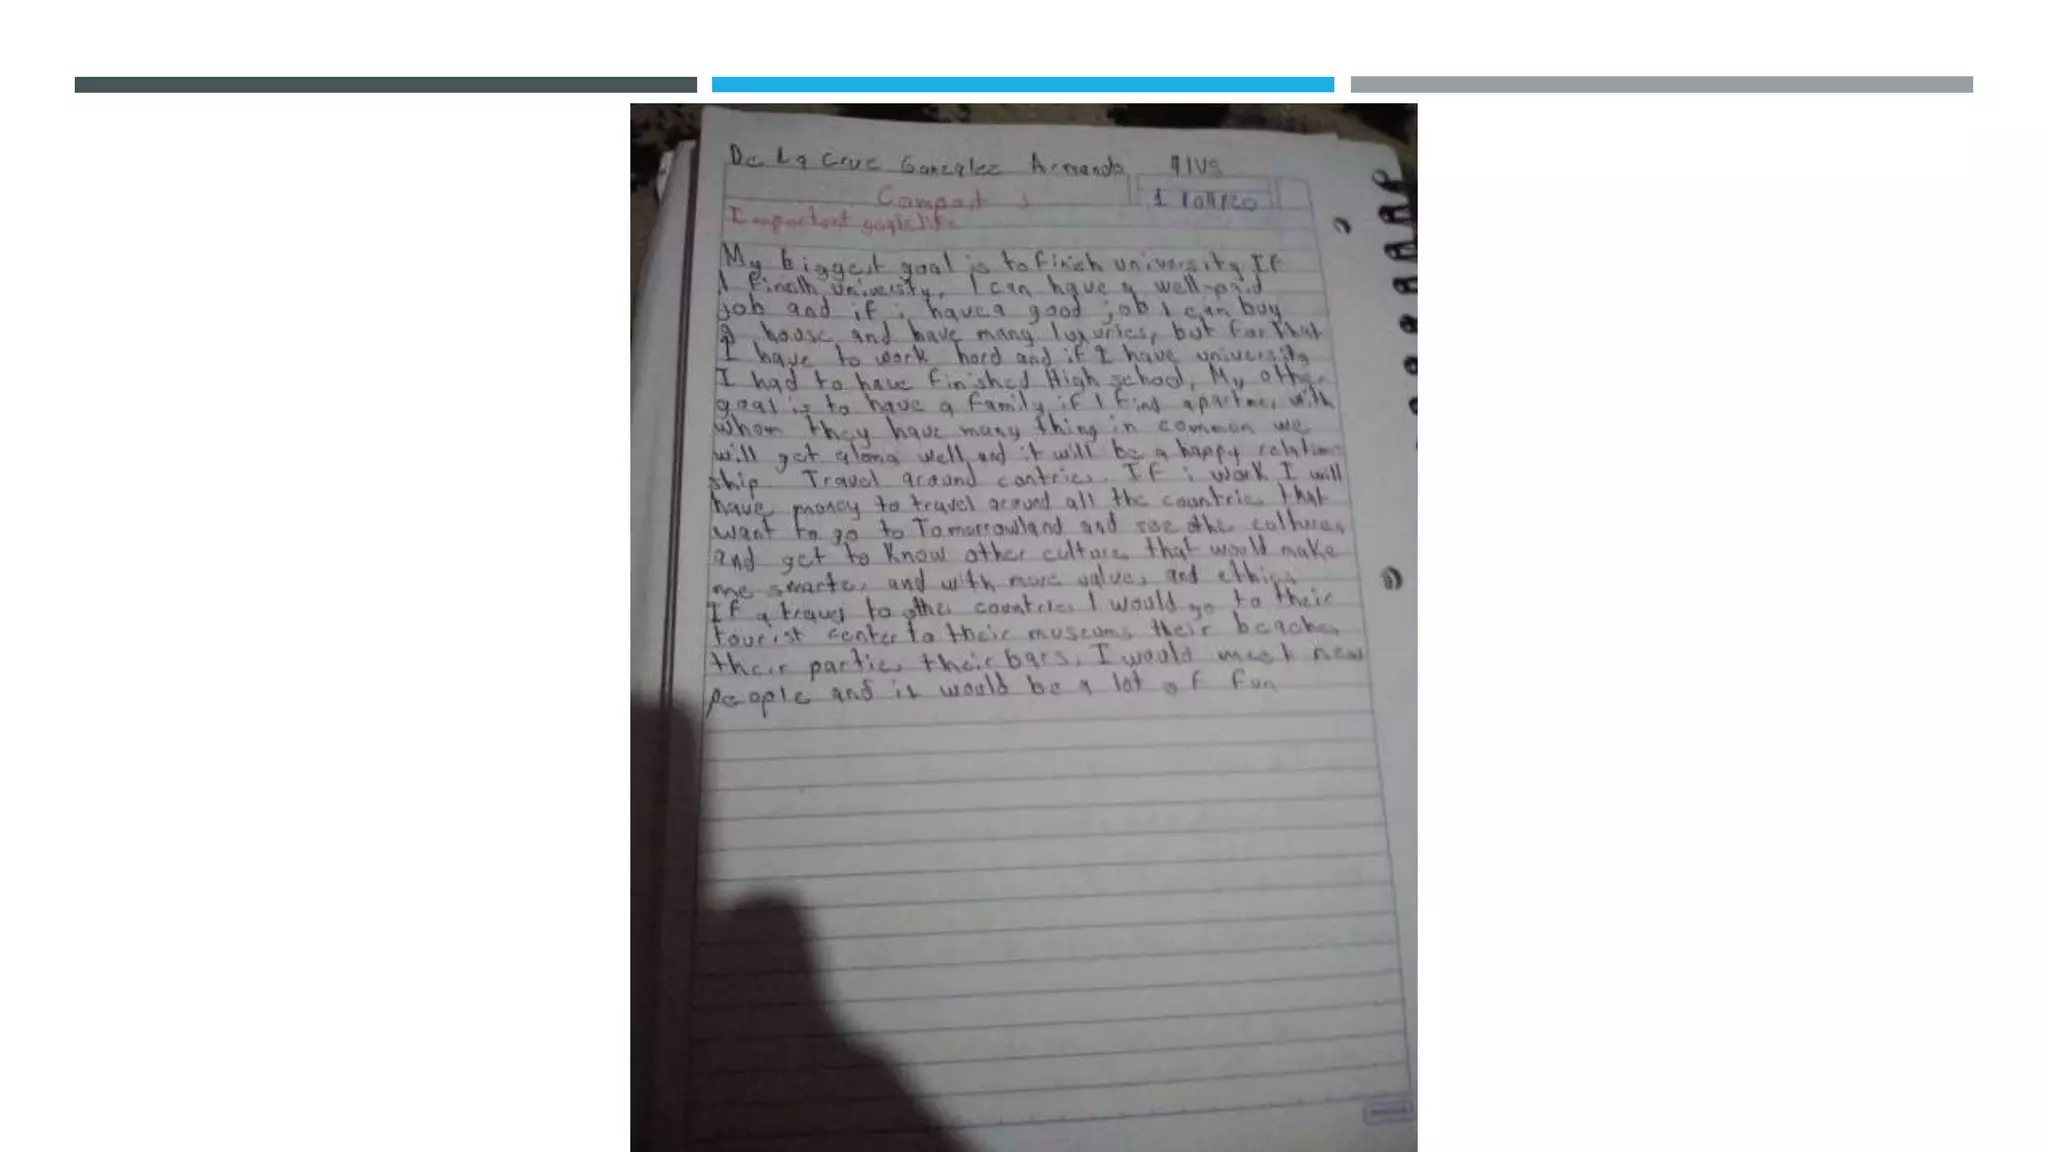 De La Cruz Gonzalez Armando 4IV5
Compost 3 1/04/20
Important goals life
My biggest goal is to finish university If
I finish university, I can have a well-paid
job and if i have a good job I can buy
a house and have many luxuries, but for that
I have to work hard and if I have university
I had to have finished High school, My other
goal is to have a family, if I find apartner with
whom they have many thing in common we
will get along well and it will be a happy relation-
ship Travel around contries. If i work I will
have money to travel around all the countries that
want to go to Tomorrowland and see othe cultures
and get to know other cultures that would make
me smarter and with more values and ethics
If a travel to other countries I would go to their
tourist center to their museums their beaches
their parties their bars, I would meet new
people and it would be a lot of fun